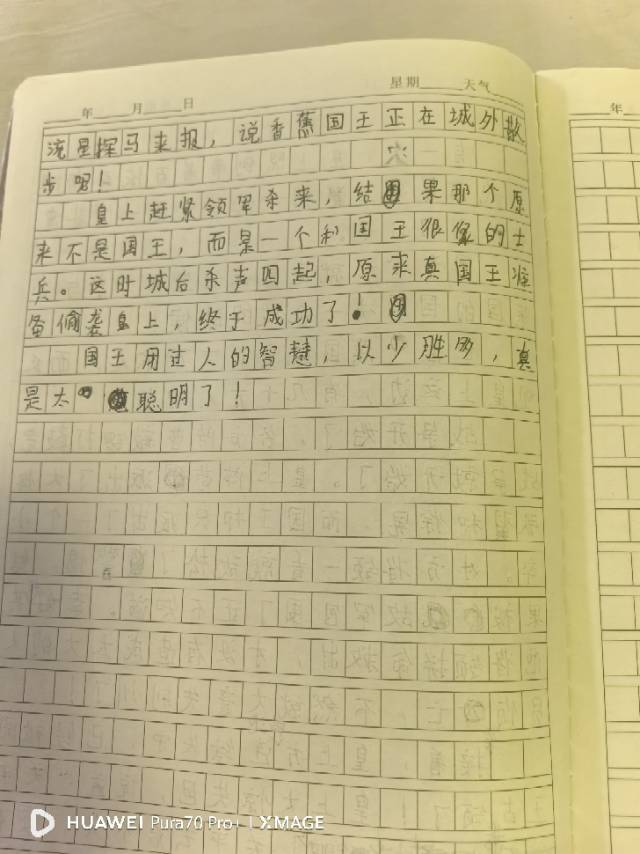 年 月 日 星期 天气
年
流星探马来报，说香蕉国王正在城外散
步呢！
皇上赶紧领军杀来，结果那个原
来不是国王，而是一个和国王很像的士
兵。这时城后杀声四起，原来真国王准
备偷袭皇上，终于成功了！
国王用过人的智慧，以少胜多，真
是太聪明了！
HUAWEI Pura70 Pro+ | XMAGE